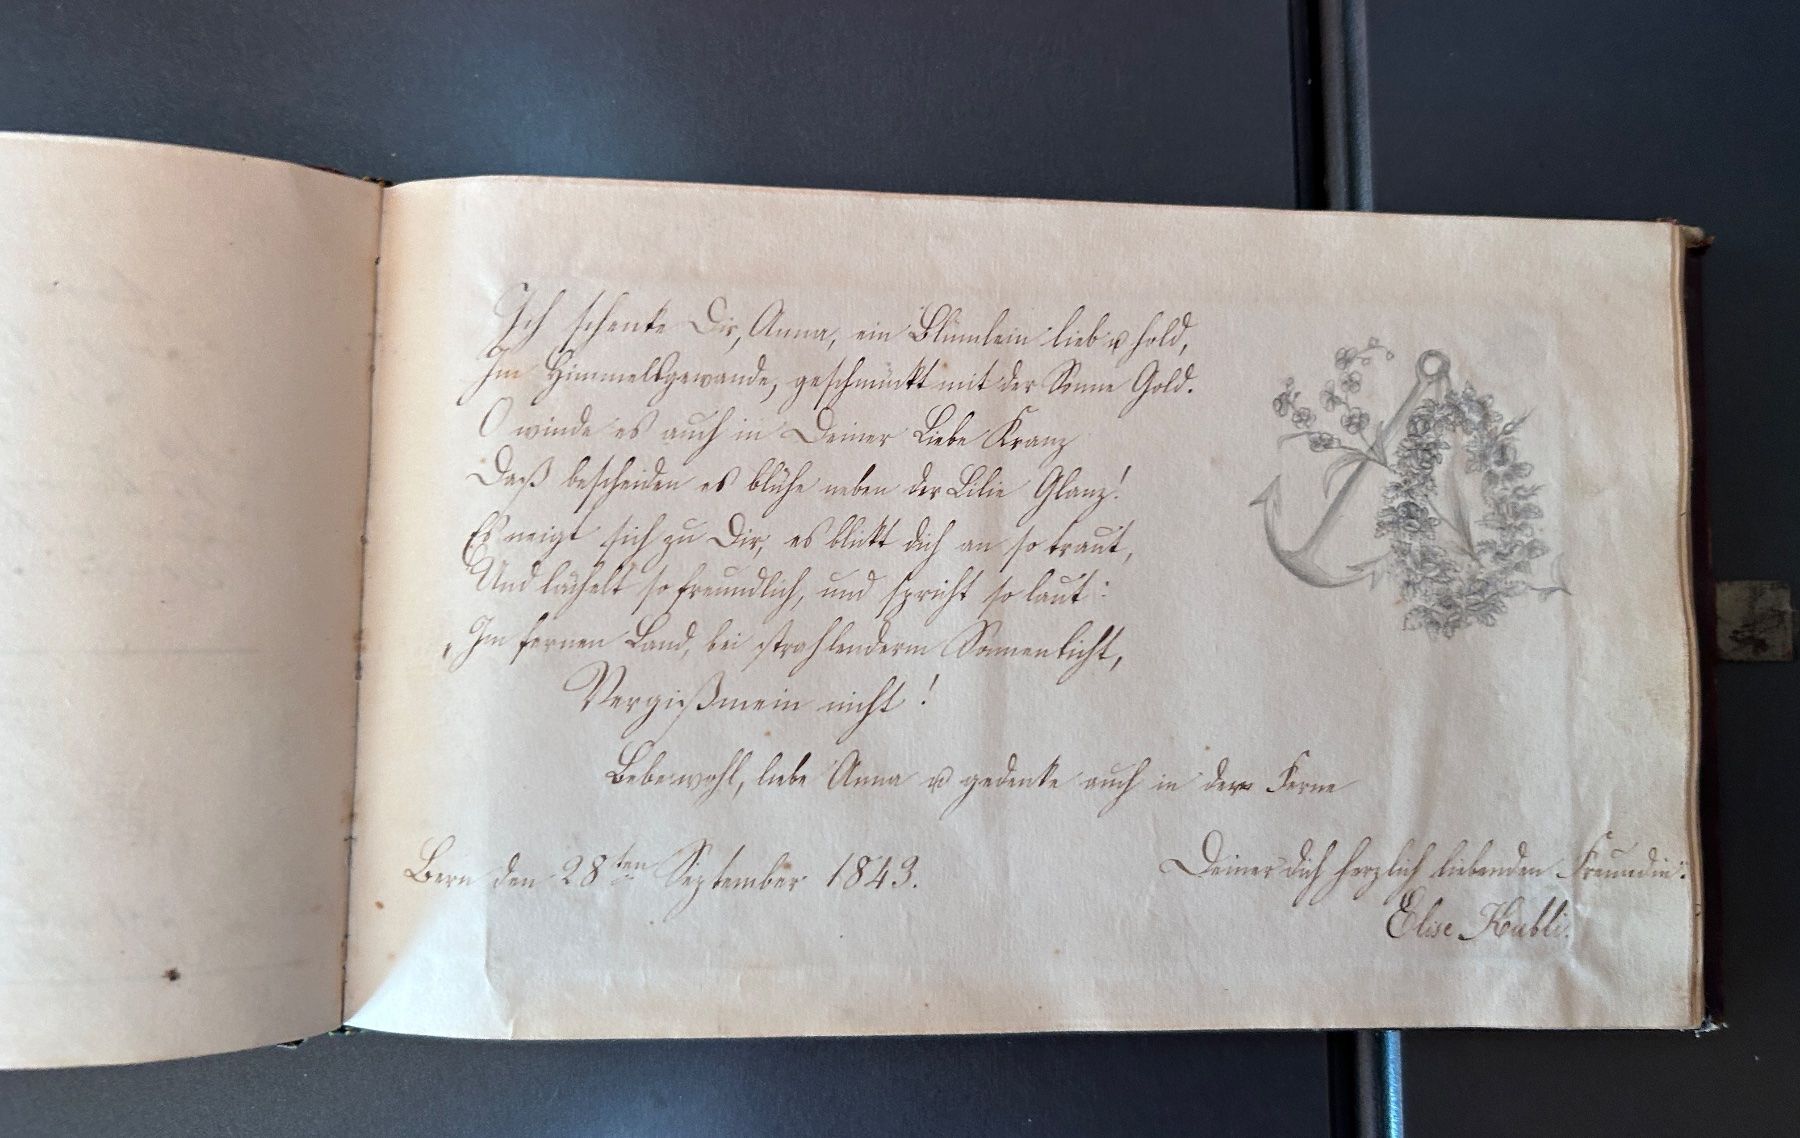 Ich schenke Dir, Anna, ein Blümlein lieb u hold,
Im Himmelsgewande, geschmückt mit der Sonne Gold.
O winde es auch in Deiner Liebe Kranz
Daß bescheiden es blühe neben der Lilie Glanz!
Es neigt sich zu Dir, es blickt dich an so traut,
Und lächelt so freundlich, und spricht so laut:
„Im fernen Land, bei strahlenderm Sonnenlicht,
Vergißmein nicht!
Lebewohl, liebe Anna u gedenke auch in der Ferne
Bern den 28ten September 1843.
Deiner dich herzlich liebenden Freundin:
Elise Kubli.